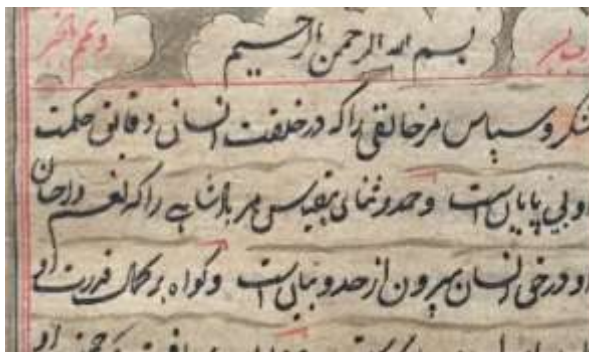 بسم الله الرحمن الرحیم وتمم بالخیر
شکر و سپاس مر خالقی را که در خلقت انسان دقائق حکمت
او بی پایان است و حمد و ثنای بیقیاس مر را که نعم و احسان
او در حق انسان بیرون از حد و بیان است و کواه بر کمال قدرت او